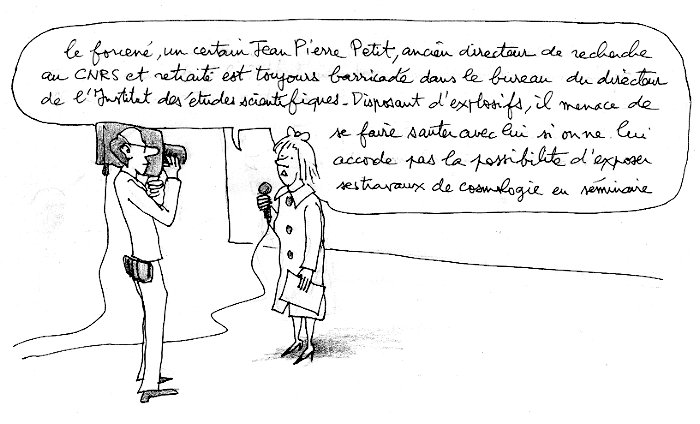 le forcené, un certain Jean Pierre Petit, ancien directeur de recherche
au CNRS et retraité est toujours barricadé dans le bureau du directeur
de l'Institut des études scientifiques - Disposant d'explosifs, il menace de
se faire sauter avec lui si on ne lui
accorde pas la possibilité d'exposer
ses travaux de cosmologie en séminaire